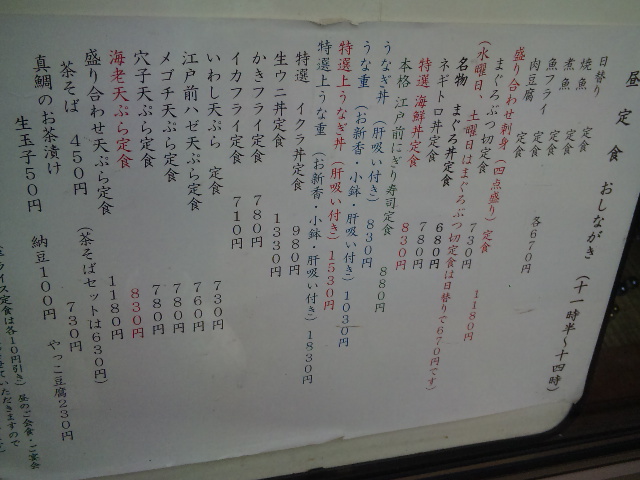 昼定食 おしながき (十一時半〜十四時)
日替り
焼魚 定食
煮魚 定食
魚フライ 定食
肉豆腐 定食 各670円
盛り合わせ刺身(四点盛り)定食 1180円
まぐろぶつ切定食 730円
(水曜日、土曜日はまぐろぶつ切定食は日替りで670円です)
名物 まぐろ丼定食 680円
ネギトロ丼定食 780円
特選 海鮮丼定食 830円
本格 江戸前にぎり寿司定食 880円
うなぎ丼 (肝吸い付き) 830円
うな重 (お新香・小鉢・肝吸い付き) 1030円
特選上うなぎ丼 (肝吸い付き) 1530円
特選上うな重 (お新香・小鉢・肝吸い付き) 1830円
特選 イクラ丼定食 980円
生ウニ丼定食 1330円
かきフライ定食 780円
イカフライ定食 710円
いわし天ぷら 定食 730円
江戸前ハゼ天ぷら定食 760円
メゴチ天ぷら定食 780円
穴子天ぷら定食 780円
海老天ぷら定食 830円
盛り合わせ天ぷら定食 1180円
茶そば 450円 (茶そばセットは630円)
真鯛のお茶漬け 730円
生玉子50円 納豆100円 やっこ豆腐230円
ライス定食は各10円引き) 昼のご会食・ご宴会
いただきますので